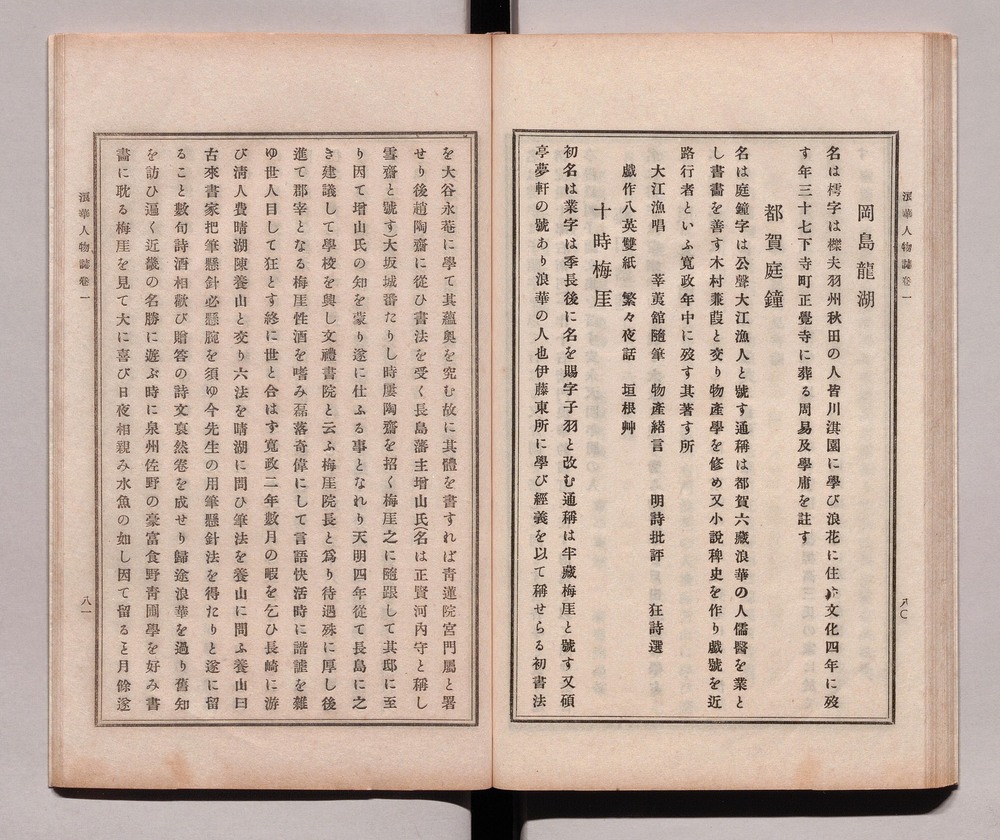 浪華人物誌卷一
八〇
岡島龍湖
名は樗字は櫟夫羽州秋田の人皆川淇園に學び浪花に住す文化四年に歿
す年三十七下寺町正覺寺に葬る周易及學庸を註す
都賀庭鐘
名は庭鐘字は公聲大江漁人と號す通稱は都賀六藏浪華の人儒醫を業と
し書畵を善す木村蒹葭と交り物產學を修め又小說稗史を作り戲號を近
路行者といふ寬政年中に歿す其著す所
大江漁唱　莘荑館隨筆　物產緖言　明詩批評　狂詩選
戲作八英雙紙　繁々夜話　垣根艸
十時梅厓
初名は業字は季長後に名を賜字子羽と改む通稱は半藏梅厓と號す又碩
亭夢軒の號あり浪華の人也伊藤東所に學び經義を以て稱せらる初書法
を大谷永菴に學て其蘊奧を究む故に其體を書すれば靑蓮院宮門屬と署
せり後趙陶齋に從ひ書法を受く長島藩主增山氏(名は正賢河內守と稱し
雪齋と號す)大坂城番たりし時屢陶齋を招く梅厓之に隨跟して其邸に至
り因て增山氏の知を蒙り遂に仕ふる事となれり天明四年從て長島に之
き建議して學校を興し文禮書院と云ふ梅厓院長と爲り待遇殊に厚し後
進て郡宰となる梅厓性酒を嗜み磊落奇偉にして言語快活時に諧謔を雜
ゆ世人目して狂とす終に世と合はす寬政二年數月の暇を乞ひ長崎に游
び淸人費晴湖陳養山と交り六法を晴湖に問ひ筆法を養山に問ふ養山曰
古來書家把筆懸針必懸腕を須ゆ今先生の用筆懸針法を得たりと遂に留
ること數旬詩酒相歡び贈答の詩文裒然卷を成せり歸途浪華を過り舊知
を訪ひ逼く近畿の名勝に遊ぶ時に泉州佐野の豪富食野靑圃學を好み書
畵に耽る梅厓を見て大に喜び日夜相親み水魚の如し因て留ると月餘遂
浪華人物誌卷一
八一